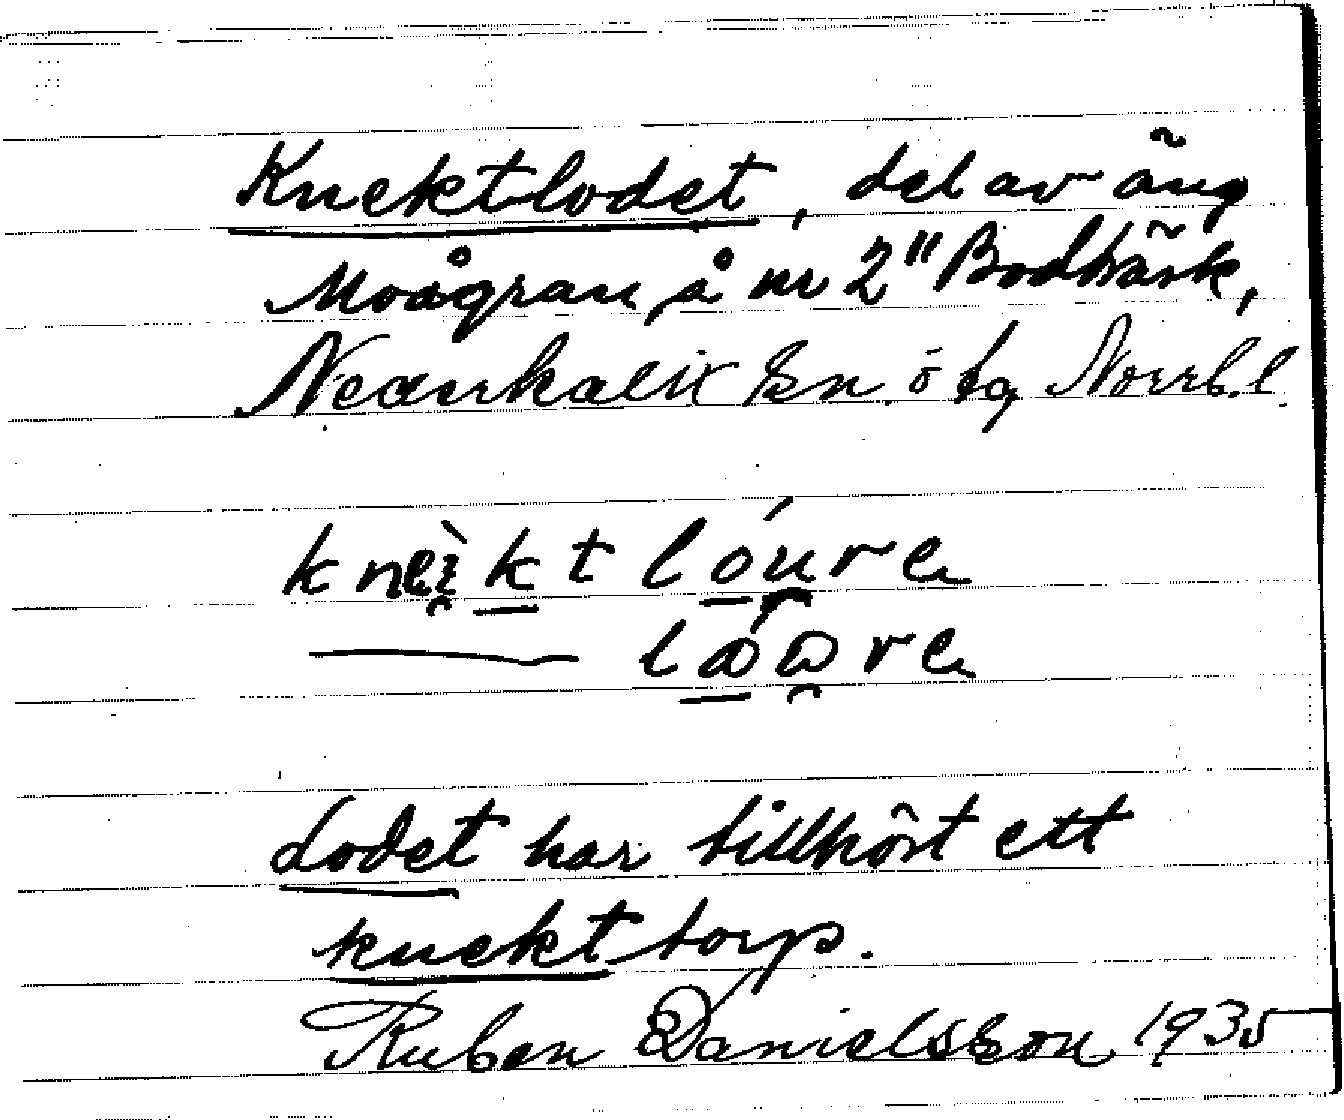 Knektlodet, del av äng
Moågran å nr 2" Bodträsk,
Nederkalix sn. ö tg Norrb.l.
knekt lóure
lare
Lodet har tillhört ett
knekttorp.
Ruben Danielsson 1935